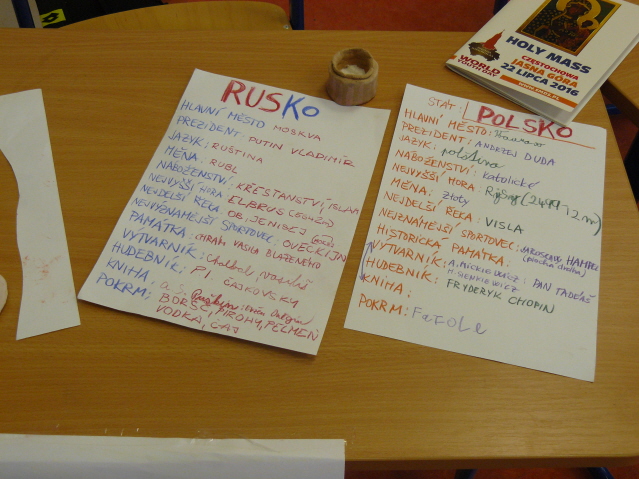 RUSKo
HLAVNÍ MĚSTO MOSKVA
PREZIDENT: PUTIN VLADIMÍR
JAZYK: RUŠTINA
MĚNA: RUBL
NÁBOŽENSTVÍ: KŘESTANSTVÍ, ISLAM
NEJVYŠŠÍ HORA: ELBRUS
NEJDELŠÍ ŘEKA OB, JENISEJ
NEJVÝZNAMĚJŠÍ SPORTOVEC: OVEČKIJN
PAMÁTKA: CHRÁM VASILA BLAŽENÉHO
VÝTVARNÍK:
HUDEBNÍK: P. I. ČAJKOVSKY
KNIHA, A. S.
POKRM: BORŠČ, PIROHY, PELMENĚ
VODKA, ČAJ
STÁT: POLSKO
HLAVNÍ MĚSTO:
PREZIDENT: ANDRZEJ DUDA
JAZYK: polština
NÁBOŽENSTVÍ: katolické
NEJVYŠŠÍ HORA: Rysy
MĚNA: złoty
NEJDELŠÍ ŘEKA: VISLA
NEJZNÁMĚJŠÍ SPORTOVEC: JAROSŁAW
HISTORICKÁ PAMÁTKA:
VÝTVARNÍK: A. MICKIEWICZ: PAN TADEÁŠ
HUDEBNÍK: H. SIENKIEWICZ
KNIHA: FRYDERYK CHOPIN
POKRM: Fazole
WORLD
YOUTH DAY
HOLY MASS
CZĘSTOCHOWA
JASNA GÓRA
22 LIPCA 2016